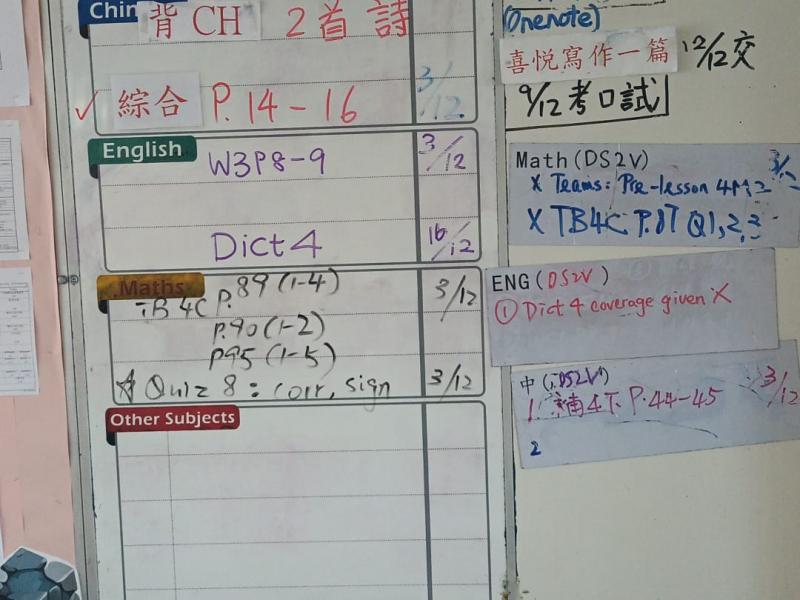 Chin
背 CH 2首詩
✓ 綜合 P.14-16 3/12
English
W3P8-9 3/12
Dict 4 16/12
Maths
TB 4C P.89(1-4) 3/12
P.90(1-2)
P95(1-5)
☆ Quiz 8: corr, sign 3/12
Other Subjects
(Onenote)
喜悅寫作一篇 12/12交
9/12考口試
Math (DS2V) 3/12
X Teams: Pre-lesson
X TB4C P.87 Q1,2,3
ENG (DS2V)
① Dict 4 coverage given X
中 (DS2V)
1. 4下 P.44-45 3/12
2